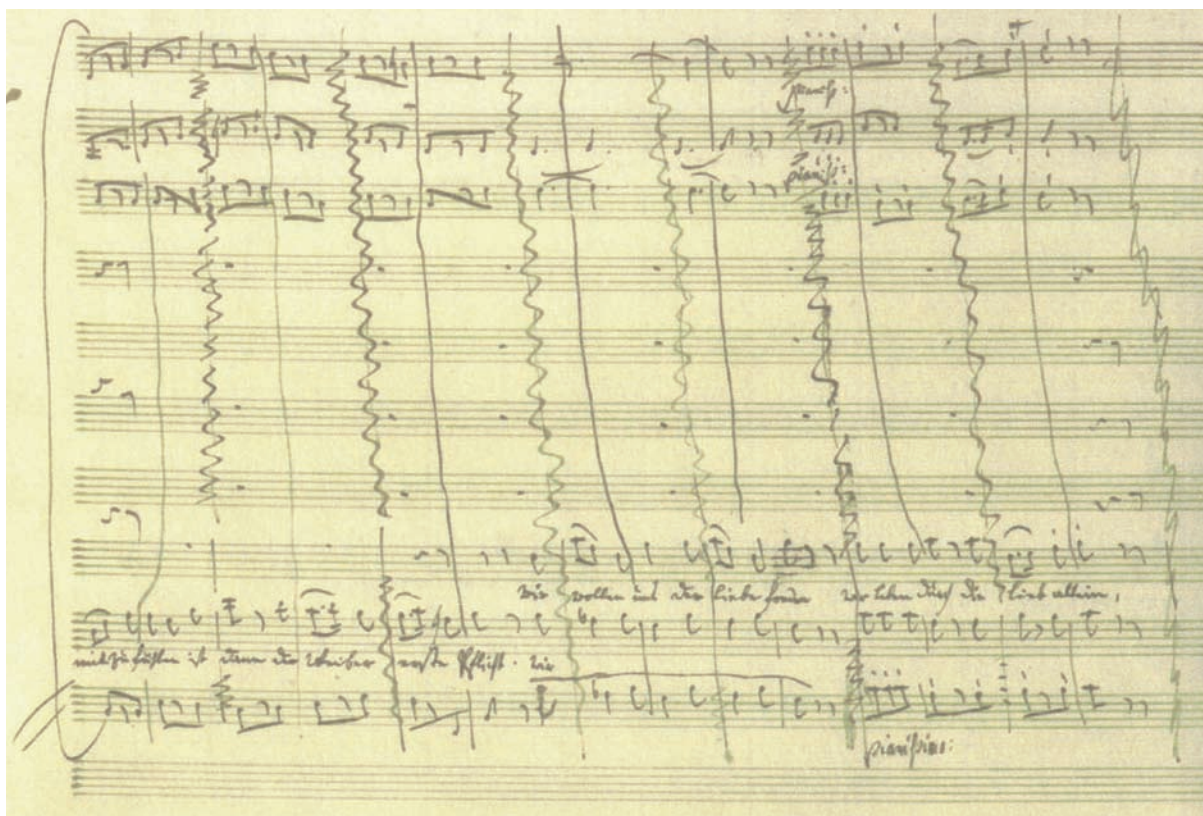 pianiss:
pianiss:
wir wollen uns der liebe freun wir leben durch die lieb allein,
mitzufühlen ist dann der Weiber erste Pflicht. wir
pianissimo: